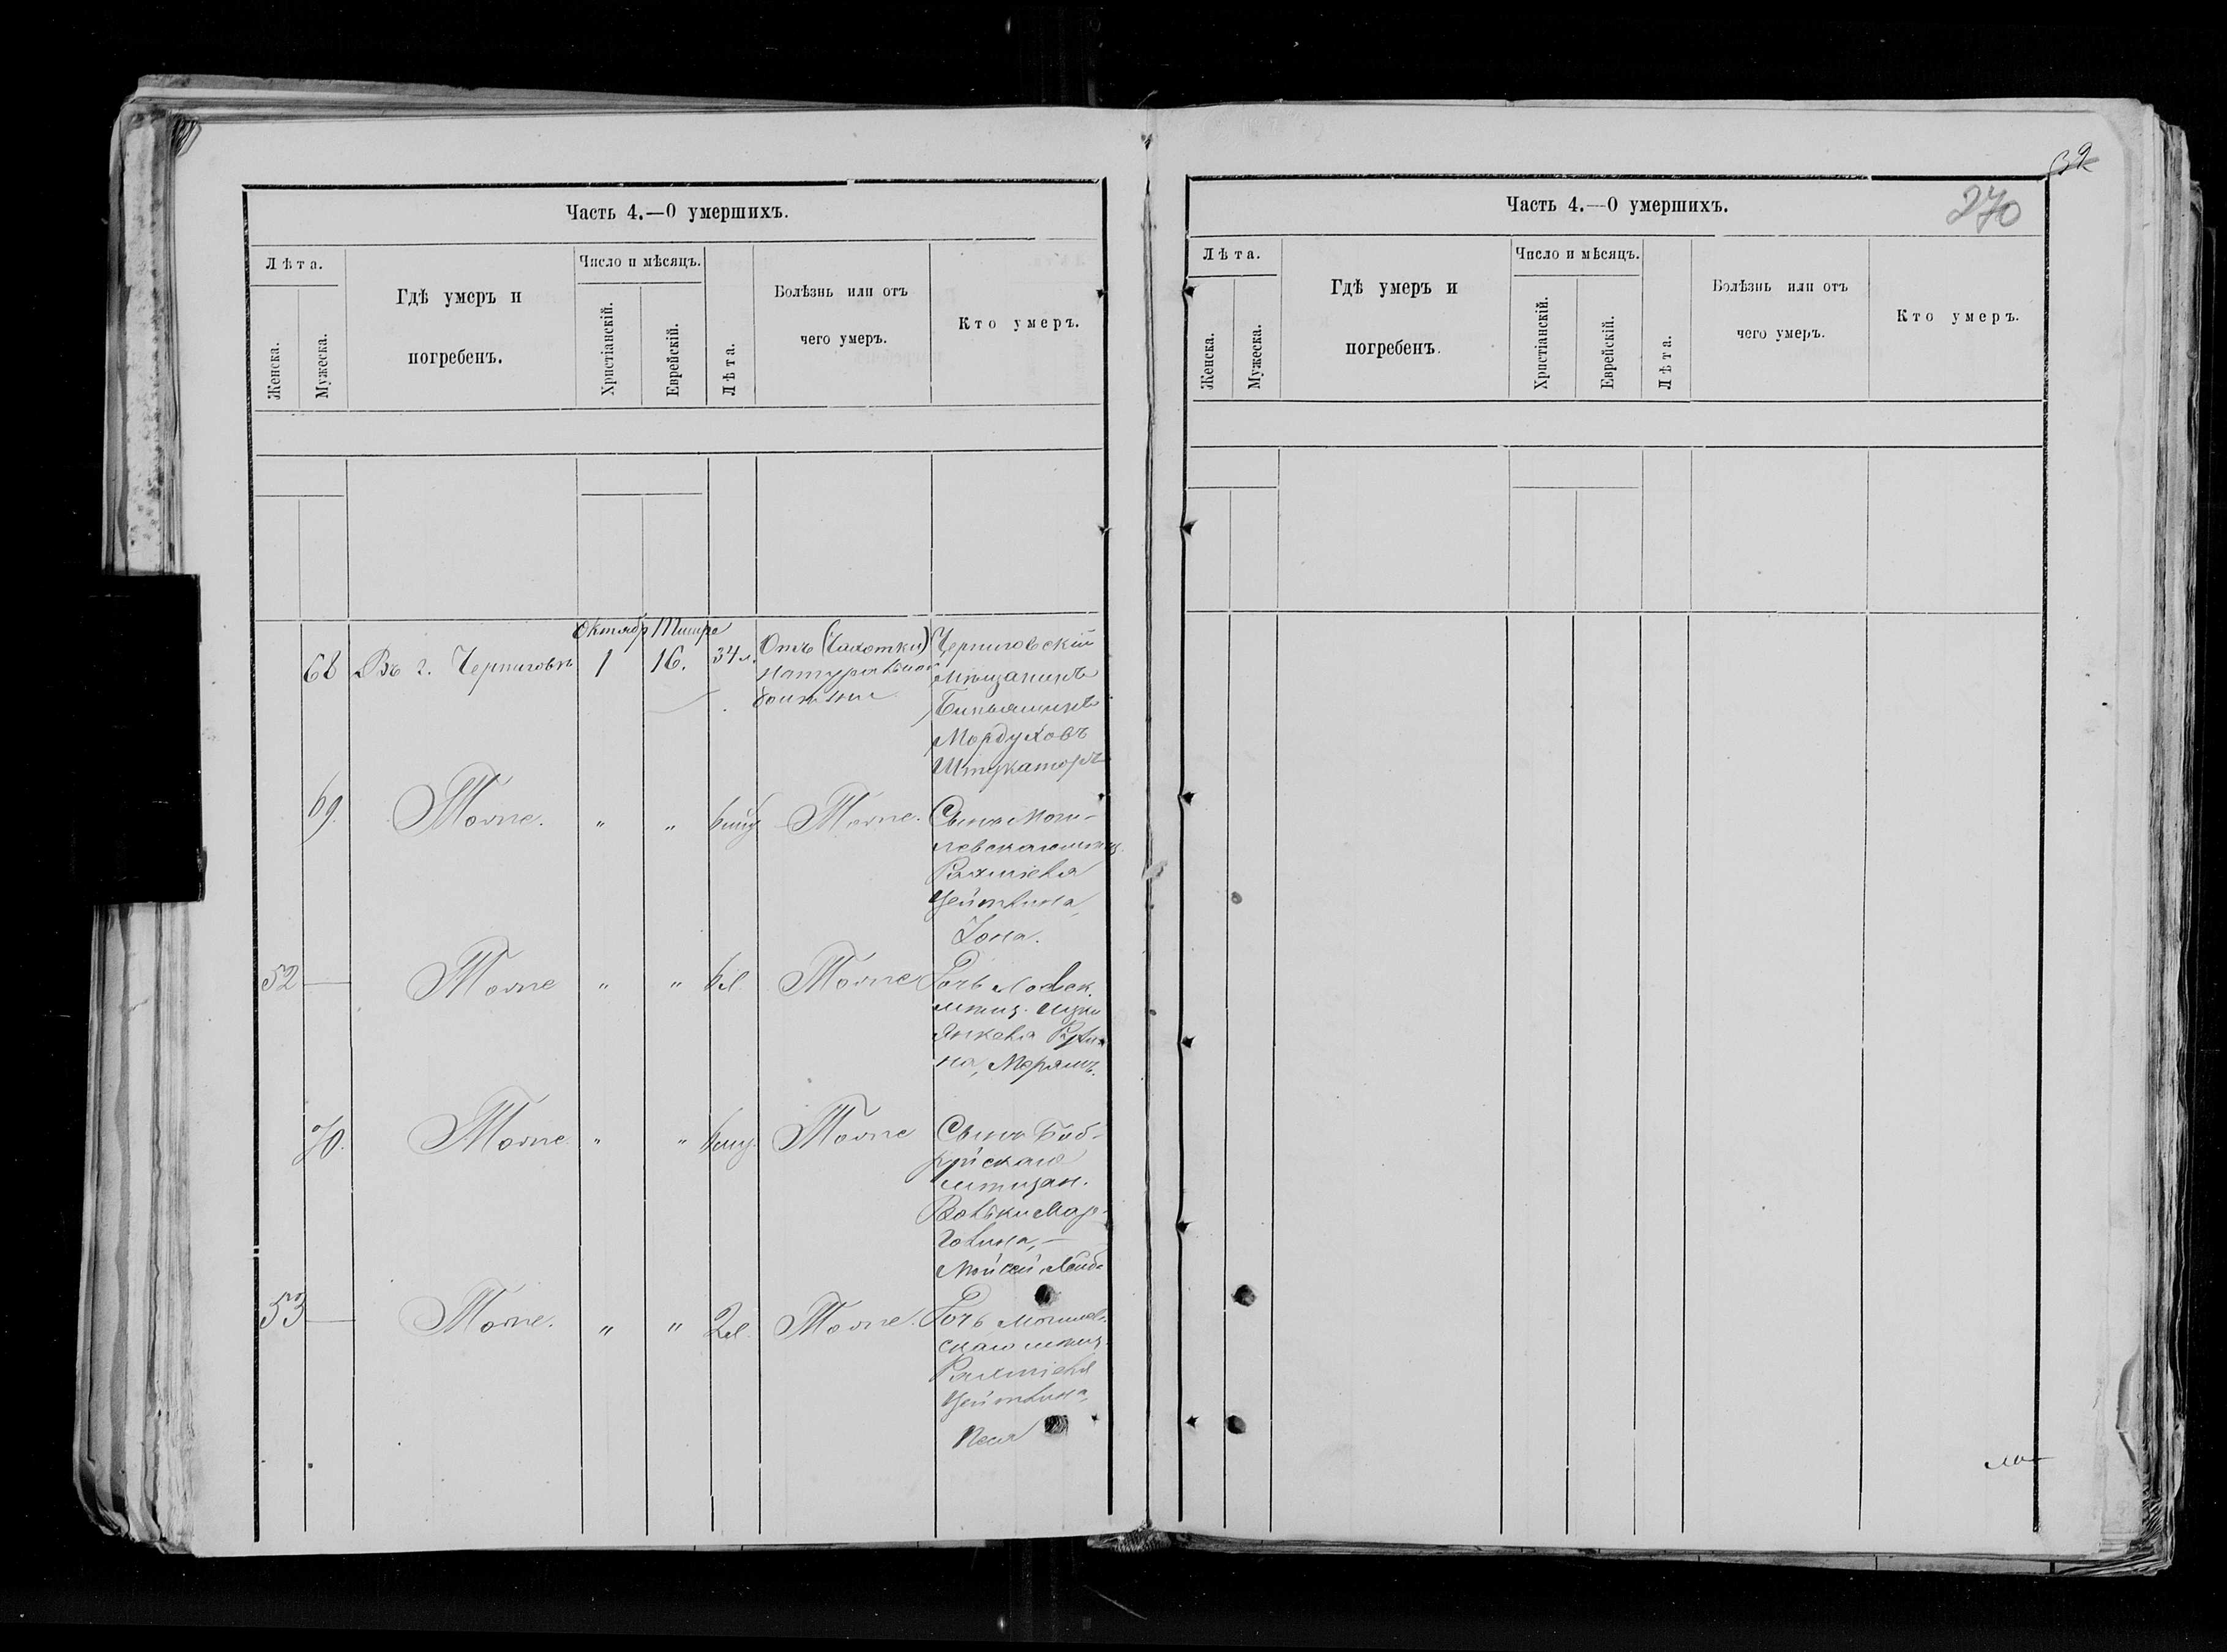 Часть 4.—О умершихъ.
Лѣта.
Женска.
Мужеска.
Гдѣ умеръ и
погребенъ.
Число и мѣсяцъ.
Христіанскій.
Еврейскій.
Лѣта.
Болѣзнь или отъ
чего умеръ.
Кто умеръ.
Октябр Тишре
68 Въ г. Черниговѣ 1 16. 34 л. Отъ (Чахотки) Черниговскій
натуральной мѣщанинъ
болѣзни Биньяминъ
Мордуховъ
Штукаторъ
69. Тоже. " " 6 мѣс Тоже. Сынъ Моги-
левскаго мѣщ.
Рахміеля
Цейтлина,
Іона.
52 — Тоже " " 6 л. Тоже Дочь Лоевск.
мѣщ. Ицки
Янкеля
на, Мерямъ.
70. Тоже. " " 6 мѣс. Тоже Сынъ Боб-
руйскаго
мѣщан.
Вольки Мар-
голина, —
Мойсей Лейба
53 — Тоже. " " 2 л. Тоже. Дочь Могилев.
скаго мѣщ.
Рахміеля
Цейтлина,
Песя
32
270
Часть 4.—О умершихъ.
Лѣта.
Женска.
Мужеска.
Гдѣ умеръ и
погребенъ.
Число и мѣсяцъ.
Христіанскій.
Еврейскій.
Лѣта.
Болѣзнь или отъ
чего умеръ.
Кто умеръ.